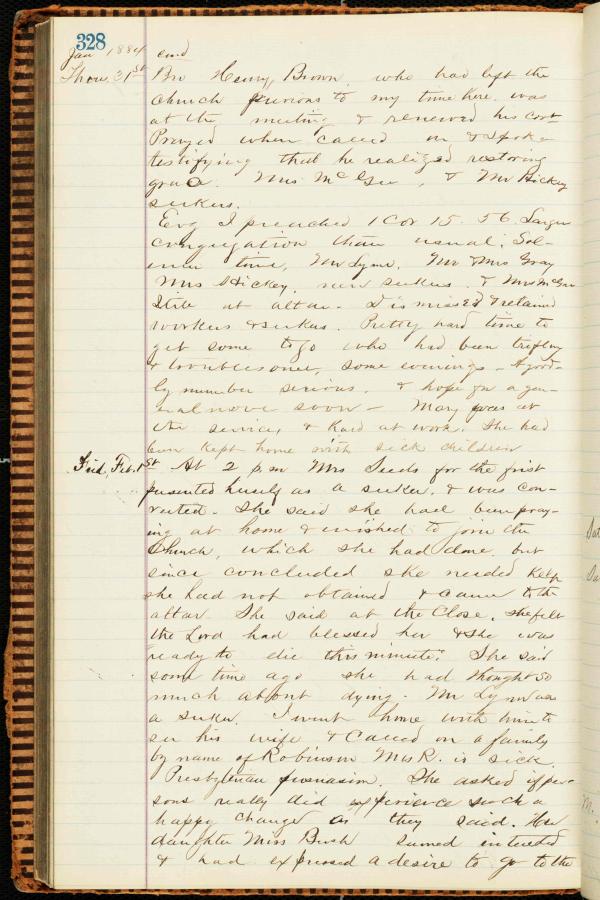 328
Jan 1884 cond
Thurs. 31st Bro Henry Brown who had left the
church previous to my time here was
at the meeting & renewed his cov-
Prayed when called on & spoke
testifying that he realized restoring
grace. Mrs McGee, & Mr Hickey
seekers.
Evg I preached 1 Cor 15. 56 Larger
congregation than usual. Sol-
emn time, Mr Lynn, Mr & Mrs Gray
Mrs Hickey, new seekers. & Mrs McGee
Still at altar. Dismissed & retained
workers & seekers. Pretty hard time to
get some to go who had been trifling
& troublesome, some evenings - A good-
ly number serious. & hope for a gen-
eral move soon - Mary was at
the service, & hard at work. She had
been kept home with sick children
Frid, Feb. 1st At 2 p m Mrs Seeds for the first
presented herself as a seeker, & was con-
verted. She said she had been pray-
ing at home & wished to join the
Church, which she had done, but
since concluded she needed help
she had not obtained & came to the
altar She said at the close, she felt
the Lord had blessed her & She was
ready to die this minute. She said
some time ago she had thought so
much about dying. Mr Lynn was
a seeker. I went home with him to
see his wife & Called on a family
by name of Robinson Mrs R. is sick.
Presbyterian persuasion. She asked if per-
sons really did experience such a
happy change as they said. Her
daughter Miss Bush seemed interested
& had expressed a desire to go to the